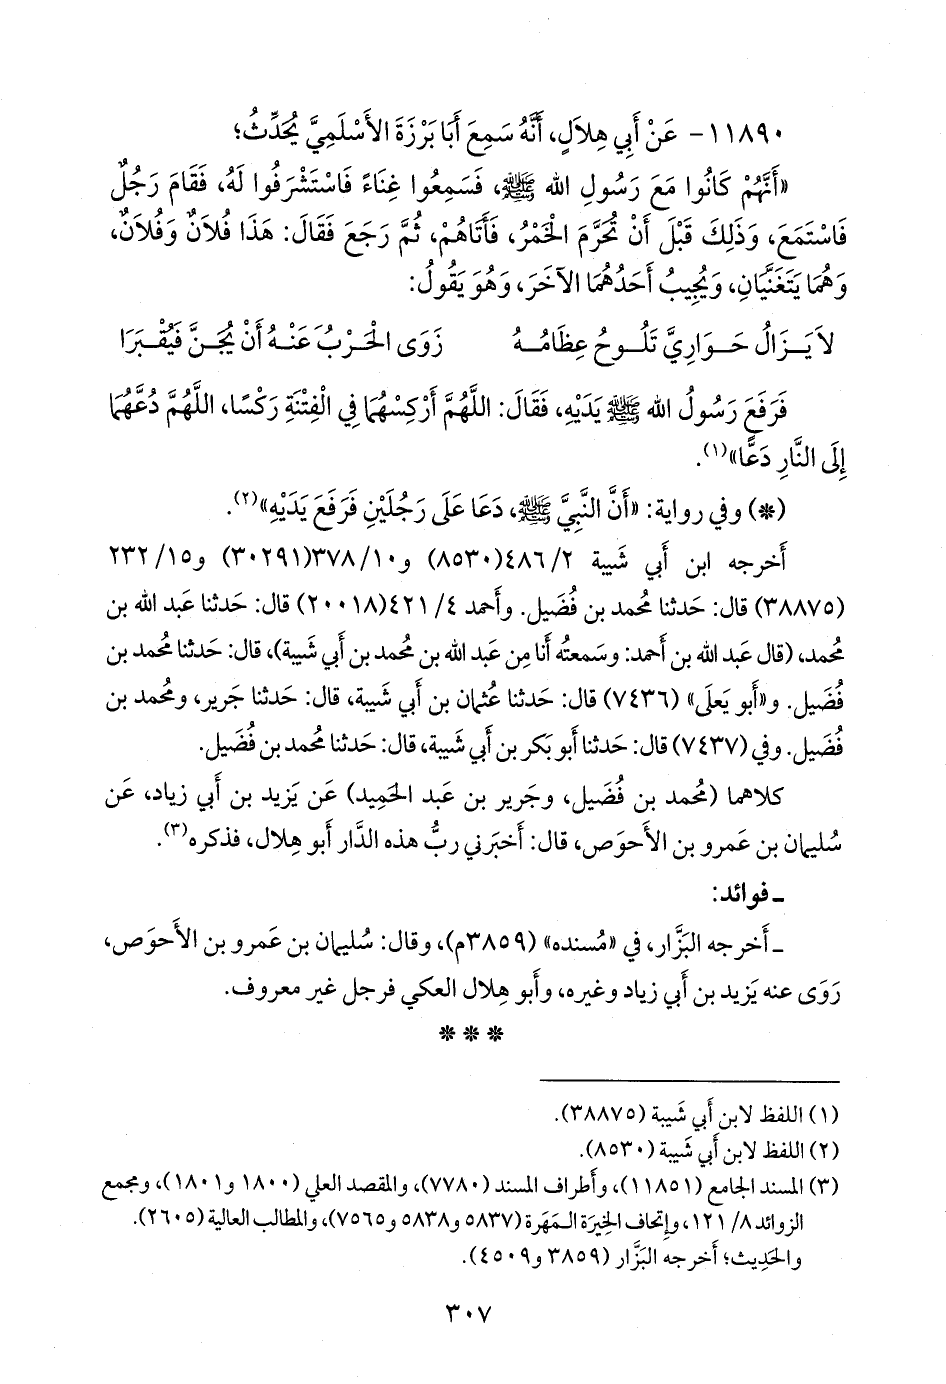 ١١٨٩٠- عَنْ أَبِي هِلَالٍ، أَنَّهُ سَمِعَ أَبَا بَرْزَةَ الأَسْلَمِيَّ يُحَدِّثُ؛
«أَنَّهُمْ كَانُوا مَعَ رَسُولِ الله ﷺ، فَسَمِعُوا غِنَاءً فَاسْتَشْرَفُوا لَهُ، فَقَامَ رَجُلٌ
فَاسْتَمَعَ، وَذَلِكَ قَبْلَ أَنْ تُحَرَّمَ الْخَمْرُ، فَأَتَاهُمْ، ثُمَّ رَجَعَ فَقَالَ: هَذَا فُلَانٌ وَفُلَانٌ،
وَهُمَا يَتَغَنَّيَانِ، وَيُجِيبُ أَحَدُهُمَا الآخَرَ، وَهُوَ يَقُولُ:
لَا يَزَالُ حَوَارِيَّ تَلُوحُ عِظَامُهُ زَوَى الْحَرْبُ عَنْهُ أَنْ يُجَنَّ فَيُقْبَرَا
فَرَفَعَ رَسُولُ الله ﷺ يَدَيْهِ، فَقَالَ: اللَّهُمَّ أَرْكِسْهُمَا فِي الْفِتْنَةِ رَكْسًا، اللَّهُمَّ دُعَّهُمَا
إِلَى النَّارِ دَعًّا»(١).
(*) وفي رواية: «أَنَّ النَّبِيَّ ﷺ، دَعَا عَلَى رَجُلَيْنِ فَرَفَعَ يَدَيْهِ»(٢).
أخرجه ابن أبي شَيبة ٢/ ٤٨٦(٨٥٣٠) و١٠/ ٣٧٨(٣٠٢٩١) و١٥/ ٢٣٢
(٣٨٨٧٥) قال: حَدثنا مُحمد بن فُضَيل. وأحمد ٤/ ٤٢١(٢٠٠١٨) قال: حَدثنا عَبد الله بن
مُحمد، (قال عَبد الله بن أحمد: وسَمعتُه أنا مِن عَبد الله بن مُحمد بن أبي شَيبة)، قال: حَدثنا مُحمد بن
فُضَيل. و«أَبو يَعلَى» (٧٤٣٦) قال: حَدثنا عُثمان بن أبي شَيبة، قال: حَدثنا جَرير، ومُحمد بن
فُضَيل. وفي (٧٤٣٧) قال: حَدثنا أَبو بَكر بن أبي شَيبة، قال: حَدثنا مُحمد بن فُضَيل.
كلاهما (مُحمد بن فُضَيل، وجَرير بن عَبد الحَمِيد) عَن يَزيد بن أَبي زياد، عَن
سُليمان بن عَمرو بن الأَحوَص، قال: أَخبَرني ربُّ هذه الدَّار أَبو هِلال، فذكره(٣).
ـ فوائد:
ـ أَخرجه البَزَّار، في «مُسنده» (٣٨٥٩م)، وقال: سُليمان بن عَمرو بن الأَحوَص،
رَوَى عنه يَزيد بن أَبي زياد وغيره، وأَبو هِلال العكي فرجل غير معروف.
* * *
(١) اللفظ لابن أَبي شَيبة (٣٨٨٧٥).
(٢) اللفظ لابن أَبي شَيبة (٨٥٣٠).
(٣) المسند الجامع (١١٨٥١)، وأَطراف المسند (٧٧٨٠)، والمقصد العلي (١٨٠٠ و١٨٠١)، ومجمع
الزوائد ٨/ ١٢١، وإتحاف الخِيرَة المَهَرة (٥٨٣٧ و٥٨٣٨ و٧٥٦٥)، والمطالب العالية (٢٦٠٥).
والحَدِيث؛ أَخرجه البَزَّار (٣٨٥٩ و٤٥٠٩).
٣٠٧